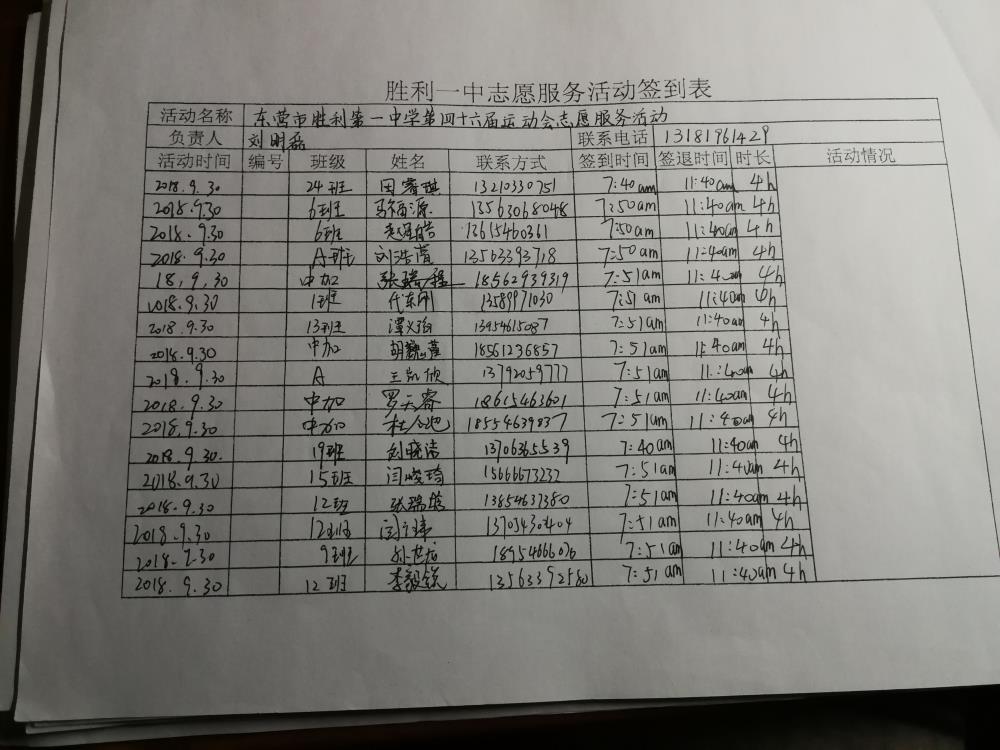 胜利一中志愿服务活动签到表
活动名称 东营市胜利第一中学第四十六届运动会志愿服务活动
负责人 刘明磊 联系电话 13181961429
活动时间 编号 班级 姓名 联系方式 签到时间 签退时间 时长 活动情况
2018.9.30 24班 田睿琪 13210330751 7:40am 11:40am 4h
2018.9.30 6班 马福源 13563068048 7:50am 11:40am 4h
2018.9.30 6班 13615460361 7:50am 11:40am 4h
2018.9.30 A班 刘浩萱 13563393718 7:50am 11:40am 4h
18.9.30 中加 张瑞程 18562939319 7:51am 11:40am 4h
2018.9.30 1班 代东刚 13589971030 7:51am 11:40am 4h
2018.9.30 13班 13954615087 7:51am 11:40am 4h
2018.9.30 中加 18561236857 7:51am 11:40am 4h
2018.9.30 A 王凯欣 13792059777 7:51am 11:40am 4h
2018.9.30 中加 罗天睿 18615463601 7:51am 11:40am 4h
2018.9.30 中加 18554639837 7:51am 11:40am 4h
2018.9.30. 19班 刘晓洁 13706365539 7:40am 11:40am 4h
2018.9.30 15班 闫晓琦 15666673232 7:51am 11:40am 4h
2018.9.30 12班 13854637380 7:51am 11:40am 4h
2018.9.30 12班 13705430404 7:51am 11:40am 4h
2018.9.30 9班 孙世龙 18954666076 7:51am 11:40am 4h
2018.9.30 12班 李毅锐 13563392580 7:51am 11:40am 4h